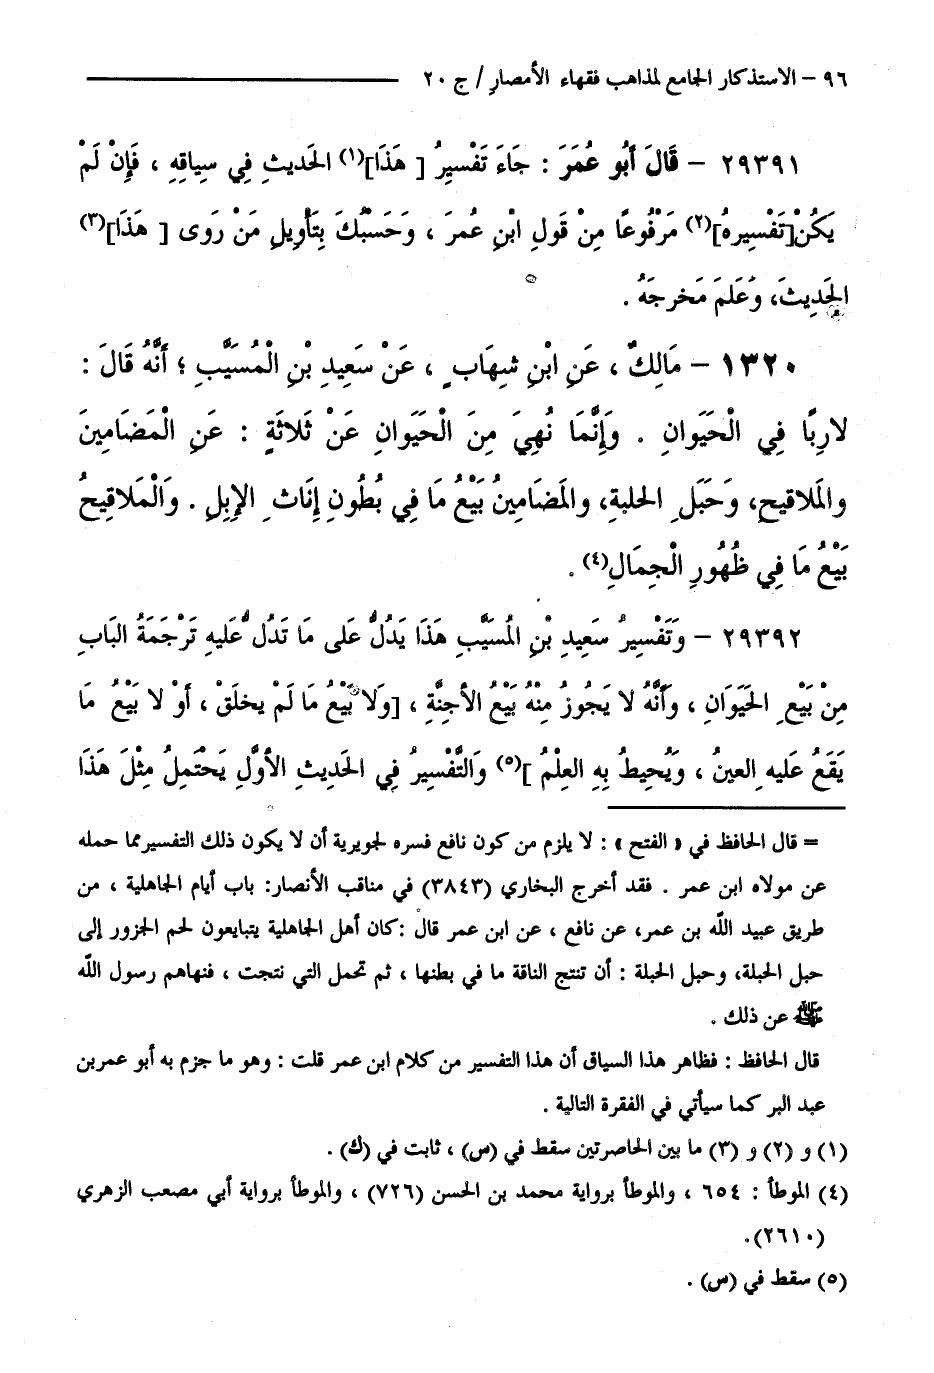 ٩٦ – الاستذكار الجامع لمذاهب فقهاء الأمصار / ج ٢٠
٢٩٣٩١ – قَالَ أَبُو عُمَرَ : جَاءَ تَفْسِيرُ [ هَذَا](١) الحَديثِ فِي سِياقِهِ ، فَإِنْ لَمْ
يَكُنْ[تَفْسِيرهُ](٢) مَرْفُوعًا مِنْ قَولِ ابْنِ عُمرَ ، وَحَسْبُكَ بِتَأْوِيلِ مَنْ رَوى [ هَذَا](٣)
الحَدِيثَ، وَعَلَمَ مَخرجَهُ .
١٣٢٠ – مَالِكٌ ، عَنِ ابْنِ شِهَابٍ ، عَنْ سَعِيدِ بْنِ الْمُسَيَّبِ ؛ أَنَّهُ قَالَ :
لارِبًا فِي الْحَيَوَانِ . وَإِنَّمَا نُهِيَ مِنَ الْحَيَوَانِ عَنْ ثَلاثَةٍ : عَنِ الْمَضَامِينَ
والمَلاقيحِ، وَحَبَلِ الحلبةِ، والمَضَامِينُ بَيْعُ مَا فِي بُطُونِ إِنَاثِ الإِبِلِ . وَالْمَلاقِيحُ
بَيْعُ مَا فِي ظُهُورِ الْجِمَالِ(٤) .
٢٩٣٩٢ – وَتَفْسِيرُ سَعِيدِ بْنِ المُسَيَّبِ هَذَا يَدُلُّ عَلى مَا تَدُلُّ عَليهِ تَرْجَمَةُ البَابِ
مِنْ بَيْعِ الحَيَوَانِ ، وَأَنَّهُ لا يَجُوزُ مِنْهُ بَيْعُ الأجنَّةِ ، [وَلا بَيْعُ مَا لَمْ يخلَقْ ، أَوْ لا بَيْعُ مَا
يَقَعُ عَليهِ العينُ ، وَيُحِيطُ بِهِ العِلْمُ ](٥) وَالتَّفْسِيرُ فِي الحَدِيثِ الأوَّلِ يَحْتَمِلُ مِثْلَ هَذَا
= قال الحافظ في « الفتح » : لا يلزم من كون نافع فسره لجويرية أن لا يكون ذلك التفسيرمما حمله
عن مولاه ابن عمر . فقد أخرج البخاري (٣٨٤٣) في مناقب الأنصار: باب أيام الجاهلية ، من
طريق عبيد الله بن عمر، عن نافع ، عن ابن عمر قال :كان أهل الجاهلية يتبايعون لحم الجزور إلى
حبل الحبلة، وحبل الحبلة : أن تنتج الناقة ما في بطنها ، ثم تحمل التي نتجت ، فنهاهم رسول الله
ﷺ عن ذلك .
قال الحافظ : فظاهر هذا السياق أن هذا التفسير من كلام ابن عمر قلت : وهو ما جزم به أبو عمربن
عبد البر كما سيأتي في الفقرة التالية .
(١) و (٢) و (٣) ما بين الحاصرتين سقط في (س) ، ثابت في (ك) .
(٤) الموطأ : ٦٥٤ ، والموطأ برواية محمد بن الحسن (٧٢٦) ، والموطأ برواية أبي مصعب الزهري
(٢٦١٠).
(٥) سقط في (س) .